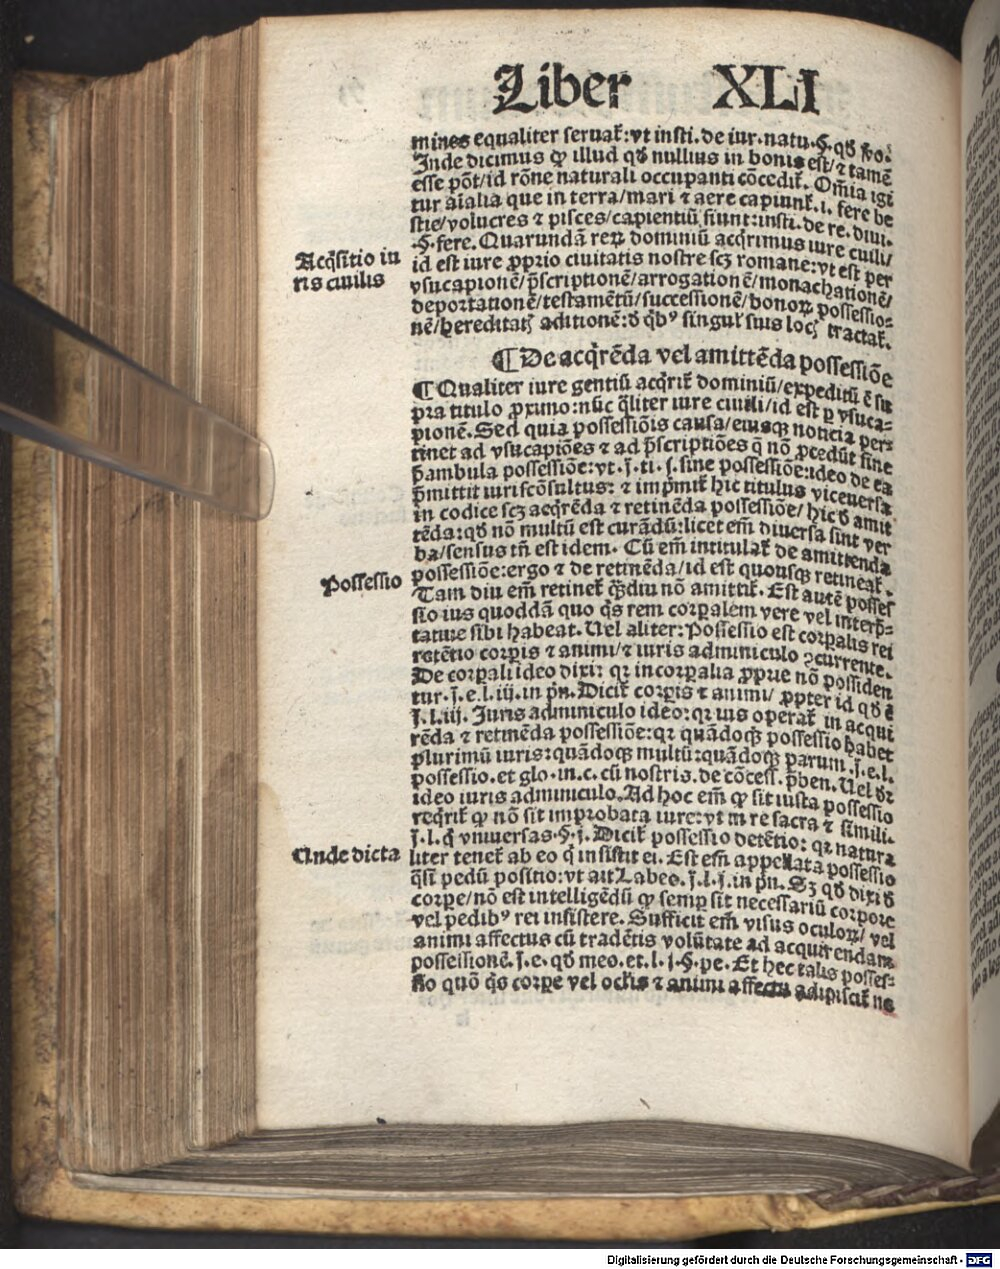 Liber XLI
mines equaliter seruat̃: vt insti. de iur. natu. §. qd̃
Inde dicimus ꝙ illud qđ nullius in bonis est/ ⁊ tamẽ
esse põt/ id rõne naturali occupanti cõcedit̃. Om̃ia igi
tur aĩalia que in terra/ mari ⁊ aere capiunt̃. i. fere be
stie/ volucres ⁊ pisces/ capientiũ fiunt: insti. de re. diui.
.§. fere. Quarundã rerꝝ dominiũ acq̃rimus iure ciuili/
Acq̃sitio iu
ris ciuilis
id est iure ꝓprio ciuitatis nostre scꝫ romane: vt est per
vsucapionẽ/ p̃scriptionẽ/ arrogationẽ/ monachationẽ/
deportationẽ/ testamẽtũ/ successionẽ/ bonoꝝ possessio-
nẽ/ hereditatꝭ aditionẽ: đ qbꝰ singul̃ suis locꝭ tractat̃.
¶ De acq̃rẽda vel amittẽda possessiõe
¶ Qualiter iure gentiũ acq̃rit̃ dominiũ/ expeditũ ẽ su
pra titulo ꝓximo: nũc q̃liter iure ciuili/ id est ꝑ vsuca-
pionẽ. Sed quia possessiõis causa/ eiusqꝫ noticia per-
tinet ad vsucapiões ⁊ ad p̃scriptiões q̃ nõ ꝓcedũt sine
p̃ambula possessiõe: vt. j. ti. j. sine possessiõe: ideo de ea
p̃mittit iuriscõsultus: ⁊ imp̃mit̃ hic titulus viceuersa
in codice scꝫ acq̃rẽda ⁊ retinẽda possessiõe/ hic đ amit
tẽda: qđ nõ multũ est curãdũ: licet em̃ diuersa sint ver
ba/ sensus tñ est idem. Cũ em̃ intitulat̃ de amittenda
possessiõe: ergo ⁊ de retinẽda/ id est quousqꝫ retineat̃.
Possessio
Tam diu em̃ retinet̃ q̃diu nõ amittit̃. Est autẽ posses
sio ius quoddã quo q̃s rem corꝑalem vere vel interp̃-
tatiue sibi habeat. Uel aliter: Possessio est corꝑalis rei
retẽtio corꝑis ⁊ animi/ ⁊ iuris adminiculo ꝯcurrente.
De corꝑali ideo dixi: qꝛ incorꝑalia ꝓprie nõ possiden
tur. j. e. l. iij. in pñ. Dicit̃ corꝑis ⁊ animi/ ꝓpter id qđ ẽ
j. l. iij. Juris adminiculo ideo: qꝛ ius operat̃ in acqui
rẽda ⁊ retinẽda possessiõe: qꝛ quãdoqꝫ possessio habet
plurimũ iuris: quãdoqꝫ multũ: quãdoqꝫ parum. j. e. l.
possessio. et glo. in. c. cũ nostris. de cõcess. p̃ben. Uel đꝛ
ideo iuris adminiculo. Ad hoc em̃ ꝙ sit iusta possessio
req̃rit̃ ꝙ nõ sit improbata iure: vt in re sacra ⁊ simili.
j. l. q̃ vniuersas. §. j. Dicit̃ possessio detẽtio: qꝛ natura
Unde dicta
liter tenet̃ ab eo q̃ insistit ei. Est em̃ appellata possessio
q̃si pedũ positio: vt ait Labeo. j. l. j. in pñ. Sꝫ qđ dixi đ
corꝑe/ nõ est intelligẽdũ ꝙ semꝑ sit necessariũ corpore
vel pedibꝰ rei insistere. Sufficit em̃ visus oculoꝝ/ vel
animi affectus cũ tradẽtis volũtate ad acquirendam
possessionẽ. j. e. qđ meo. et. l. j. §. pe. Et hec talis posses-
sio quõ q̃s corꝑe vel oclis ⁊ animi affectu adipiscit̃ ne